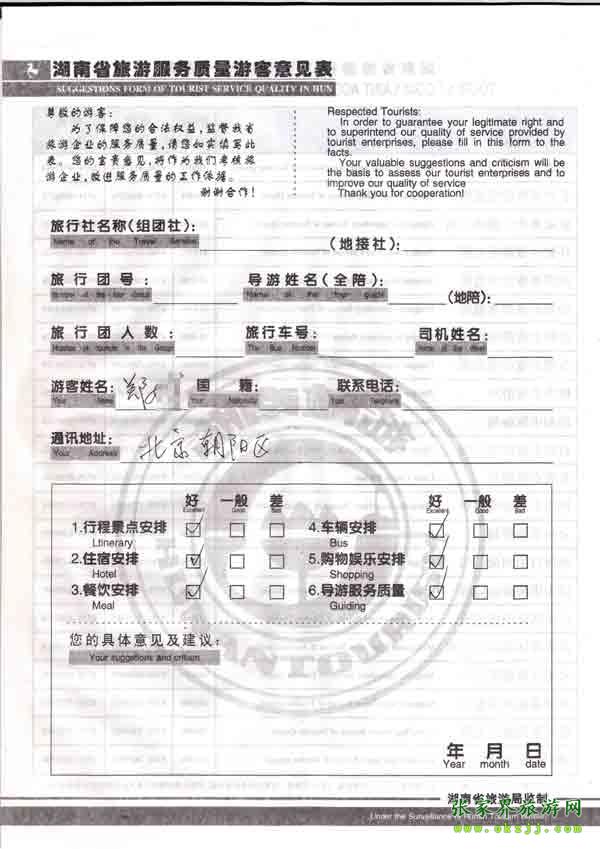 湖南省旅游服务质量游客意见表
SUGGESTIONS FORM OF TOURIST SERVICE QUALITY IN HUN
尊敬的游客:
为了保障您的合法权益,监督我省
旅游企业的服务质量,请您如实填写此
表。您的宝贵意见,将作为我们考核旅
游企业,改进服务质量的工作依据。
谢谢合作!
Respected Tourists:
In order to guarantee your legitimate right and
to superintend our quality of service provided by
tourist enterprises, please fill in this form to the
facts.
Your valuable suggestions and criticism will be
the basis to assess our tourist enterprises and to
improve our quality of service
Thank you for cooperation!
旅行社名称(组团社):
Name of the Travel Service
(地接社):
旅行团号: 导游姓名(全陪)
Name of the Tour guide
(地陪):
旅行团人数: 旅行车号: 司机姓名:
The Bus Number
游客姓名: 郑 国籍: 联系电话:
Your Name Your Nationality Your Telephone
通讯地址: 北京朝阳区
Your Address
好 一般 差 好 一般 差
Excellent Good Bad Excellent Good Bad
1.行程景点安排 4.车辆安排
Ltinerary Bus
2.住宿安排 5.购物娱乐安排
Hotel Shopping
3.餐饮安排 6.导游服务质量
Meal Guiding
您的具体意见及建议:
Your suggetions and critism
年 月 日
Year month date
湖南省旅游局监制
Under the Surveillance of Hunan Tourism Bureau
张家界旅游网
www.okzjj.com